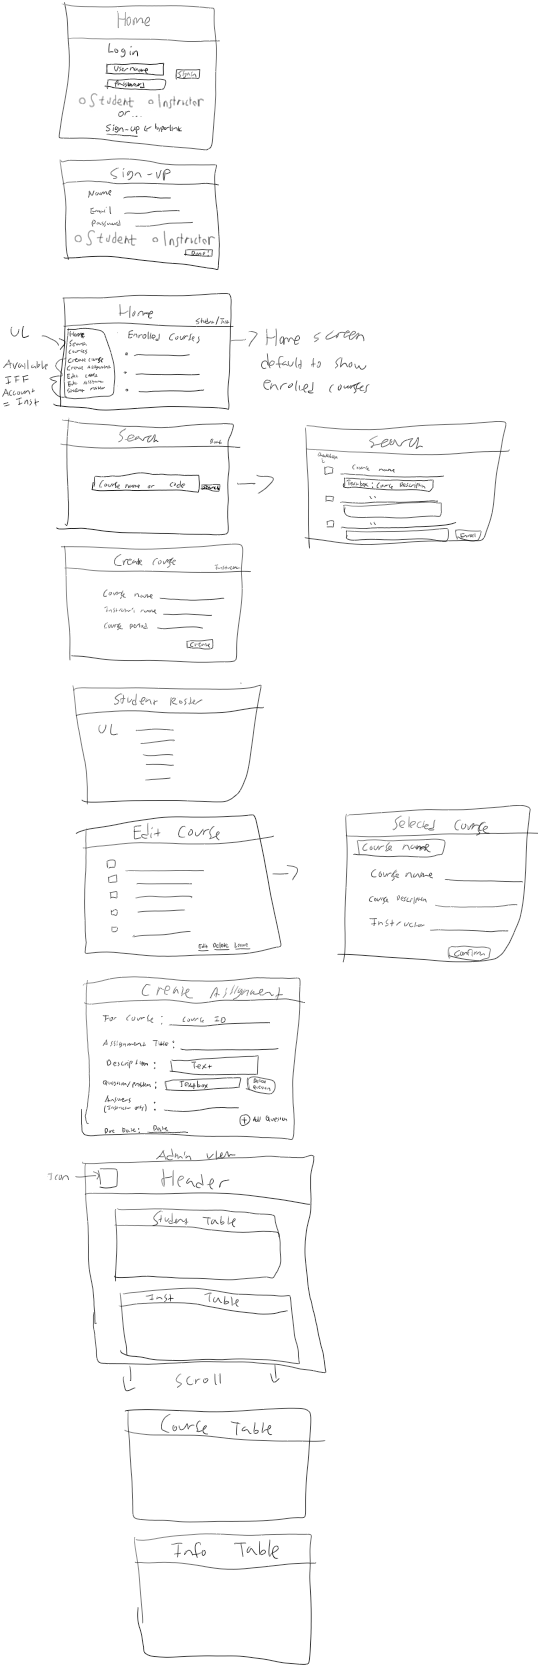 Home
Login
Username
Sign in
Password
Student Instructor
or...
Sign-up ← hyperlink
Sign-up
Name
Email
Password
Student Instructor
Done!
Home
Student/Inst
UL
Home
Search
Courses
Create Course
Create Assignment
Edit Course
Edit Assignment
Student Roster
Enrolled Courses
Available
IFF
Account
= Inst
Home screen
default to show
enrolled courses
Search
Course name or code
Search
Search
Checkbox
Course name
Textbox: Course Description
Enroll
Create Course
Instructor
Course name
Instructor's name
Course period
Create
Student Roster
UL
Edit Course
Edit Delete
Selected Course
Course name
Course name
Course Description
Instructor
Confirm
Create Assignment
For Course: Course ID
Assignment Title:
Description: Text
Question/problem: Textbox
Delete
Question
Answers
(Instructor only):
+ Add Question
Due Date: Date
Admin view
Icon
Header
Student Table
Inst Table
Scroll
Course Table
Info Table